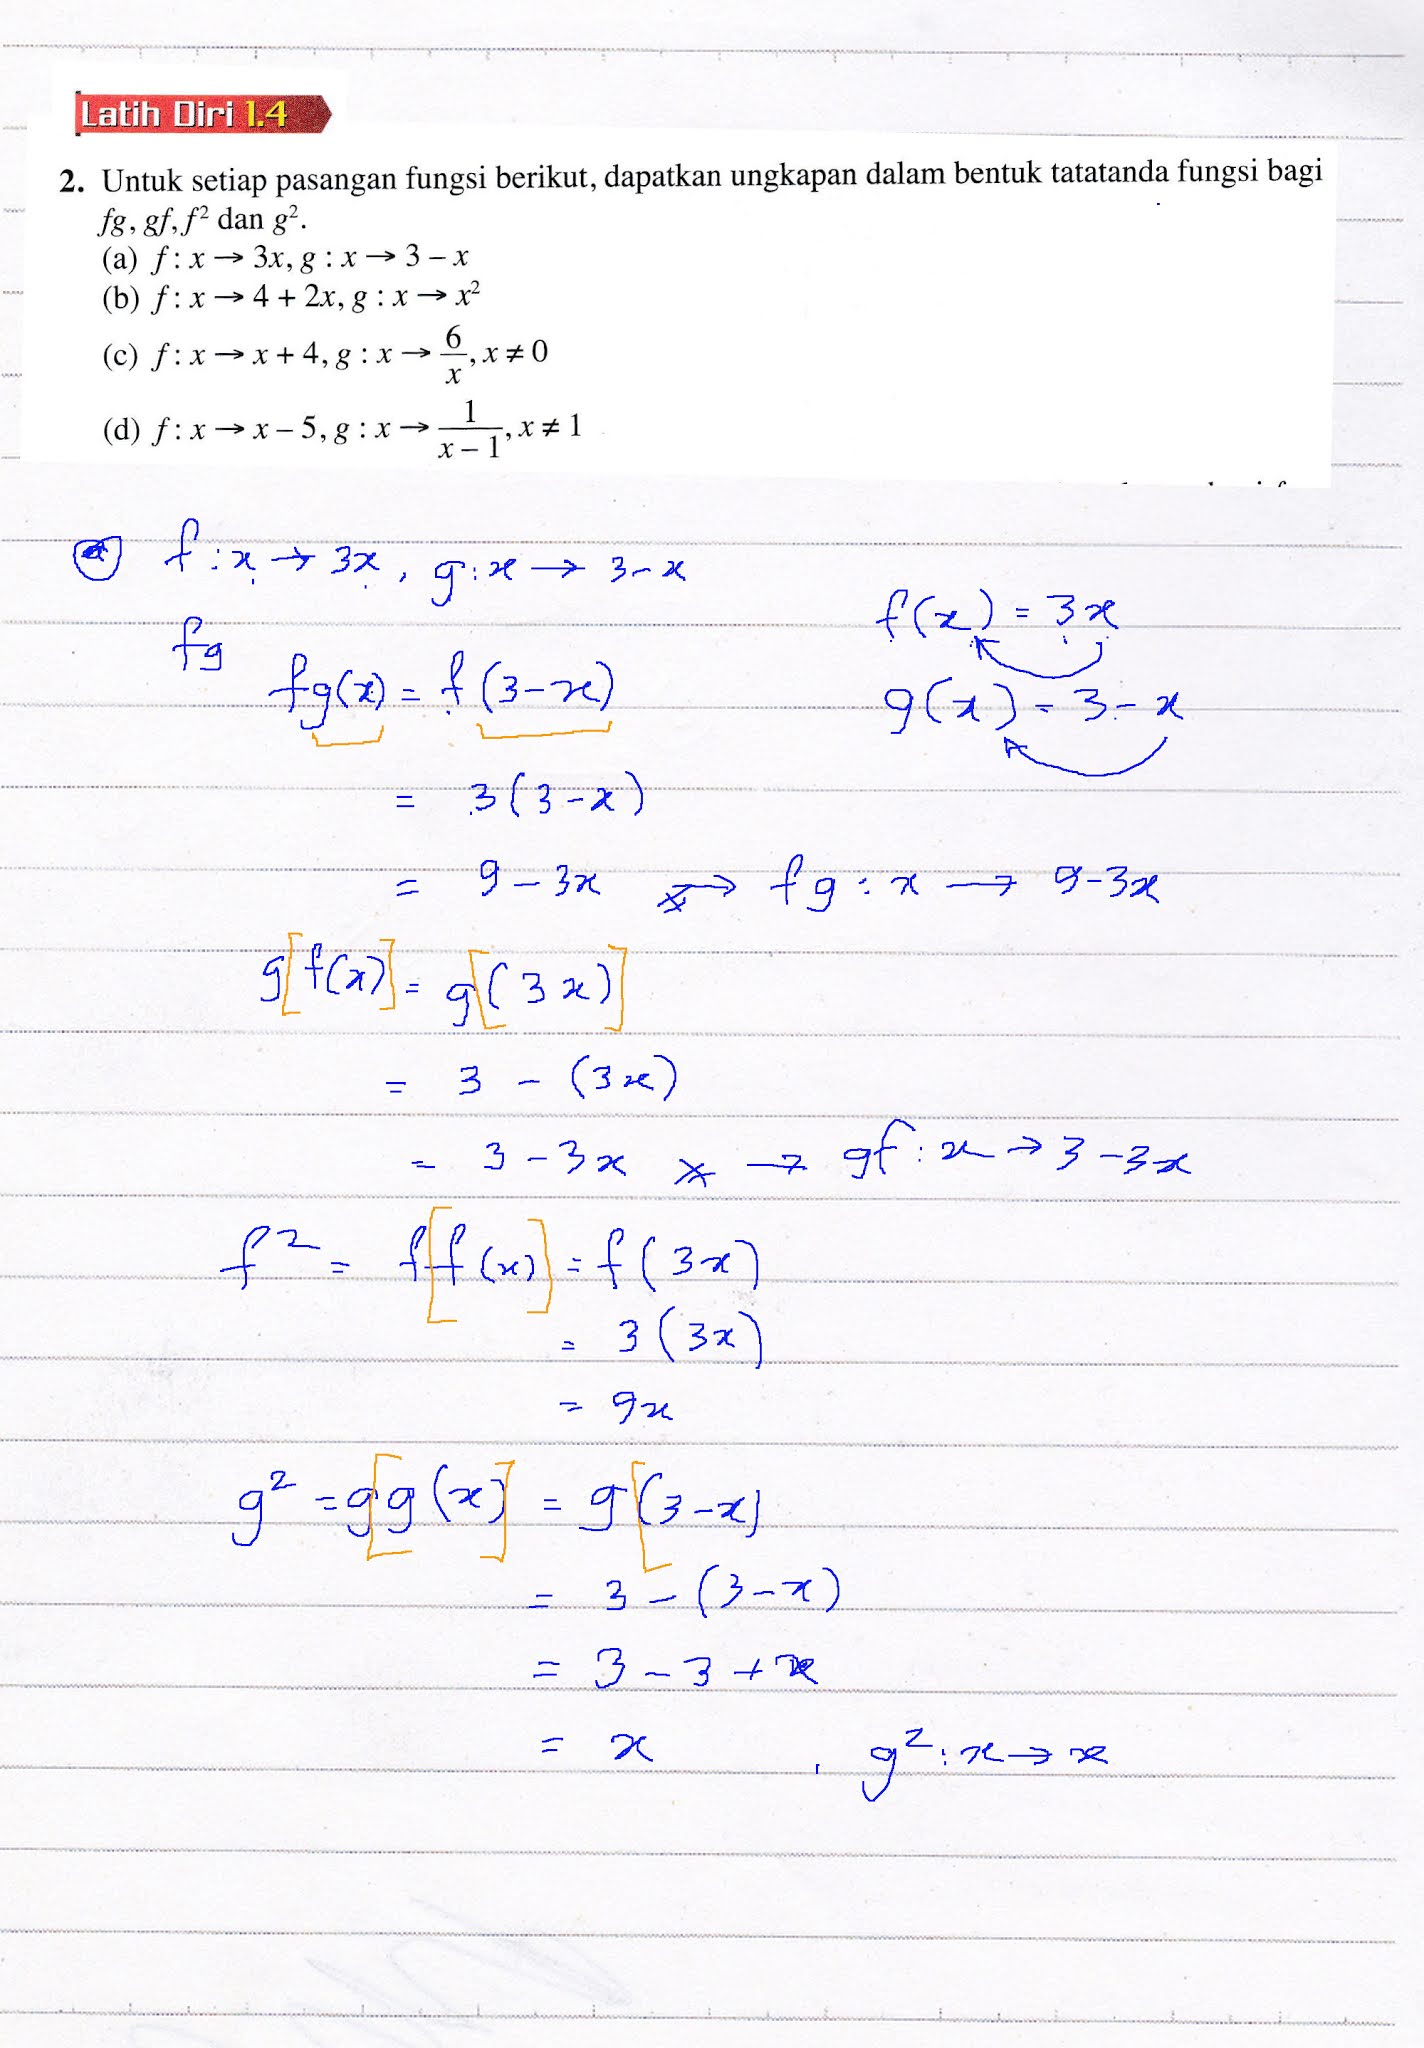 Latih Diri 1.4
2. Untuk setiap pasangan fungsi berikut, dapatkan ungkapan dalam bentuk tatatanda fungsi bagi
fg, gf, f² dan g².
(a) f : x → 3x, g : x → 3 – x
(b) f : x → 4 + 2x, g : x → x²
(c) f : x → x + 4, g : x → 6/x, x ≠ 0
(d) f : x → x – 5, g : x → 1/(x – 1), x ≠ 1
(a) f : x → 3x, g : x → 3 - x
f(x) = 3x
fg
fg(x) = f(3-x)
g(x) = 3 - x
= 3(3-x)
= 9 - 3x → fg : x → 9-3x
g[f(x)] = g[(3x)]
= 3 - (3x)
= 3 - 3x → gf : x → 3 - 3x
f² = f[f(x)] = f(3x)
= 3(3x)
= 9x
g² = g[g(x)] = g[(3-x)
= 3 - (3-x)
= 3 - 3 + x
= x , g² : x → x